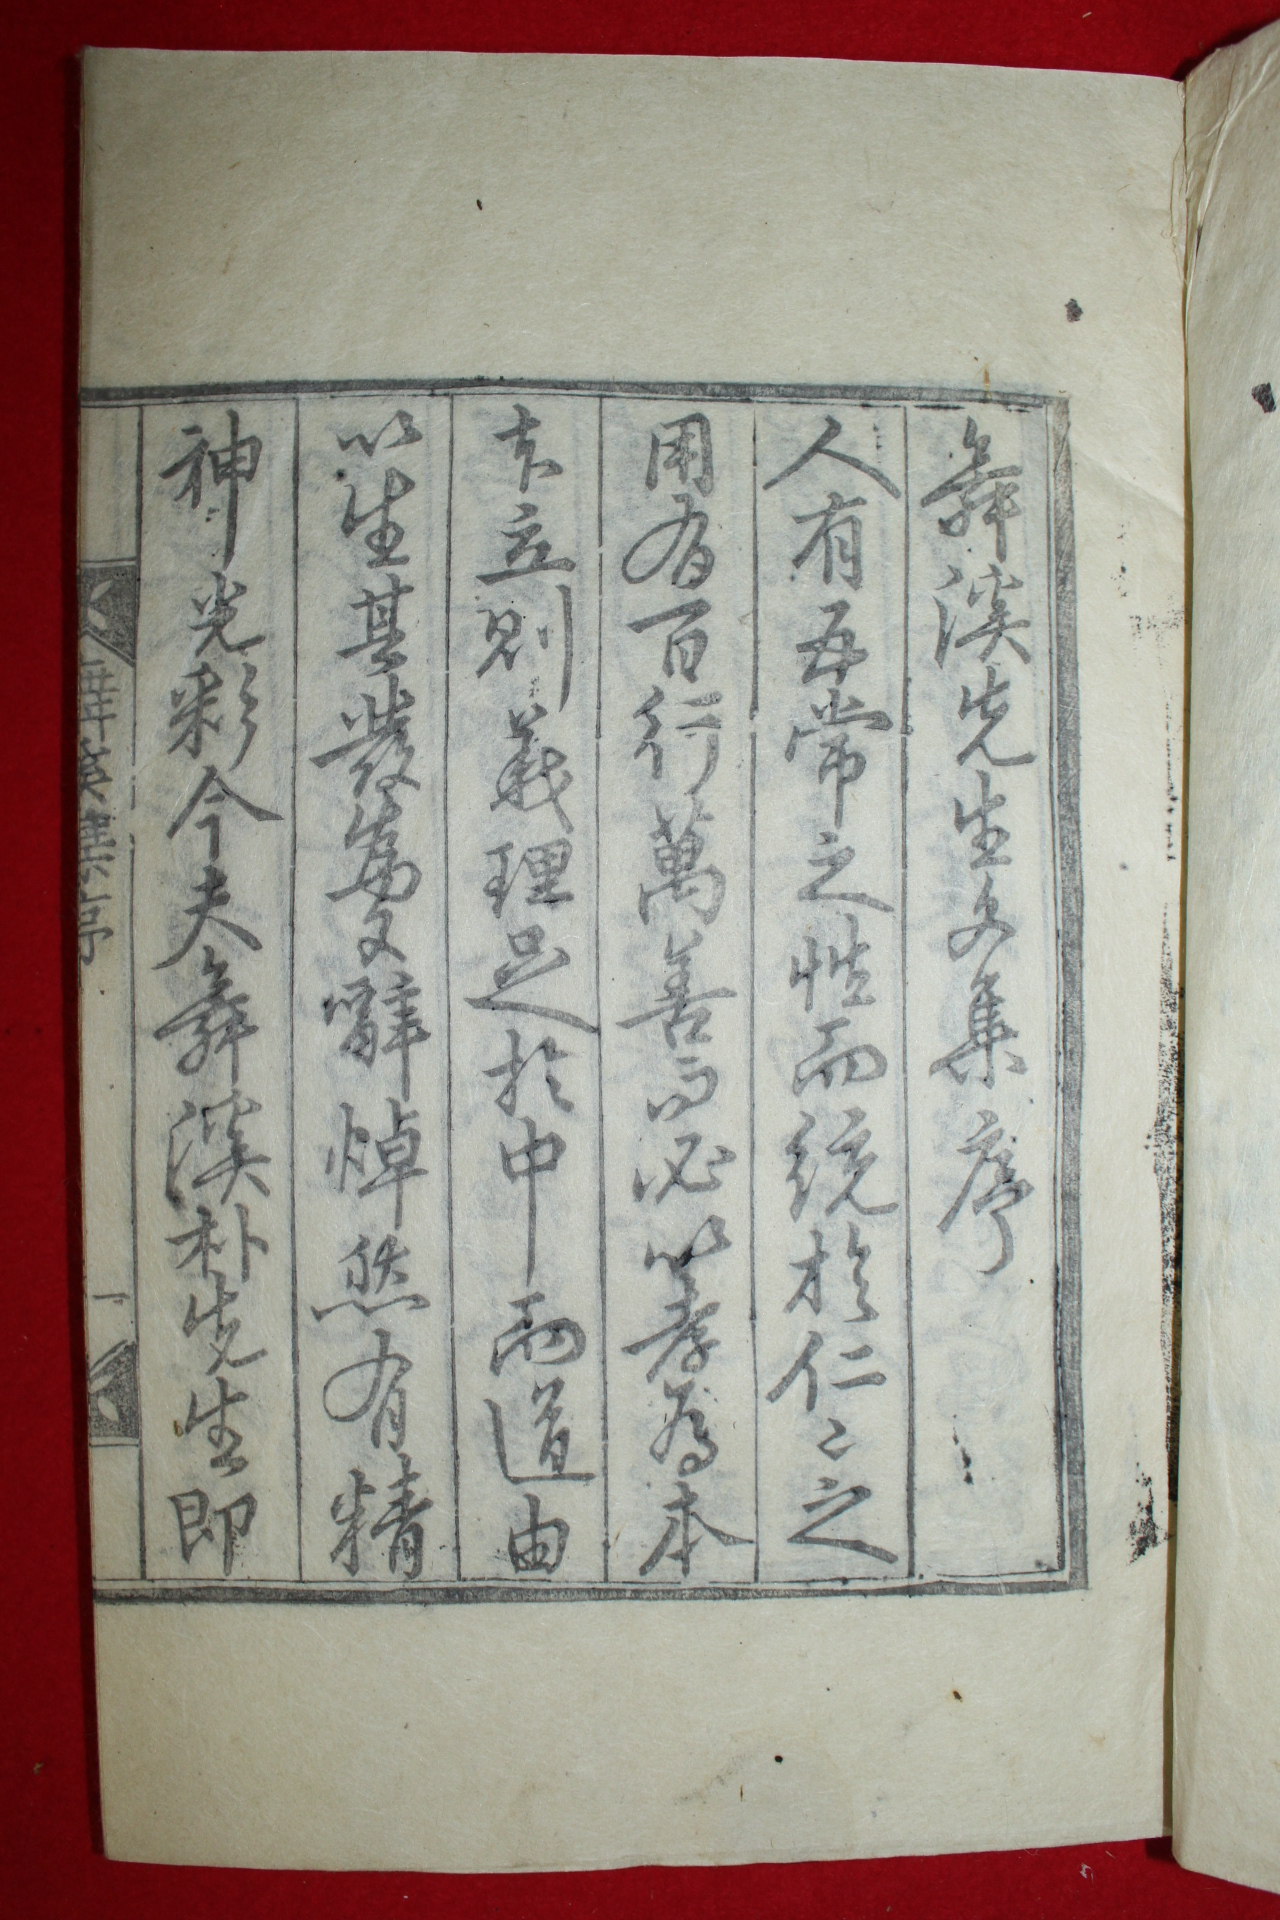 舞溪先生文集序
人有五常之性而統於仁〻之
用有百行萬善而必以孝為本
本立則義理足於中而道由
以生其發為文辭焯然有精
神光彩今夫舞溪朴先生即
舞溪集序 一